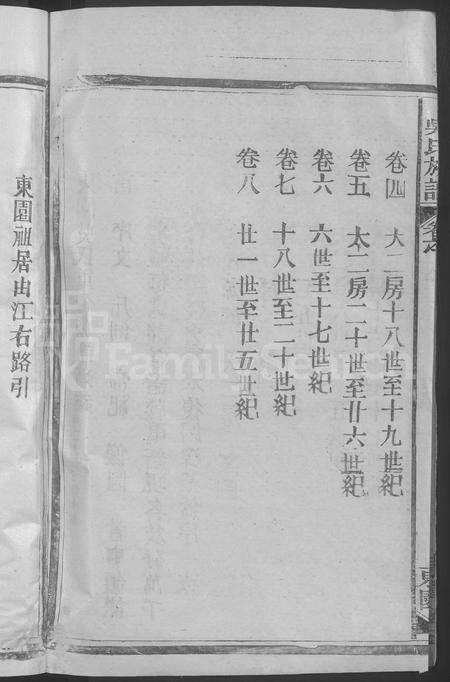 吳氏族譜
卷四 大二房十八世至十九世紀
卷五 太二房二十世至廿六世紀
卷六 六世至十七世紀
卷七 十八世至二十世紀
卷八 廿一世至廿五世紀
東園祖居由江右路引
FamilySearch